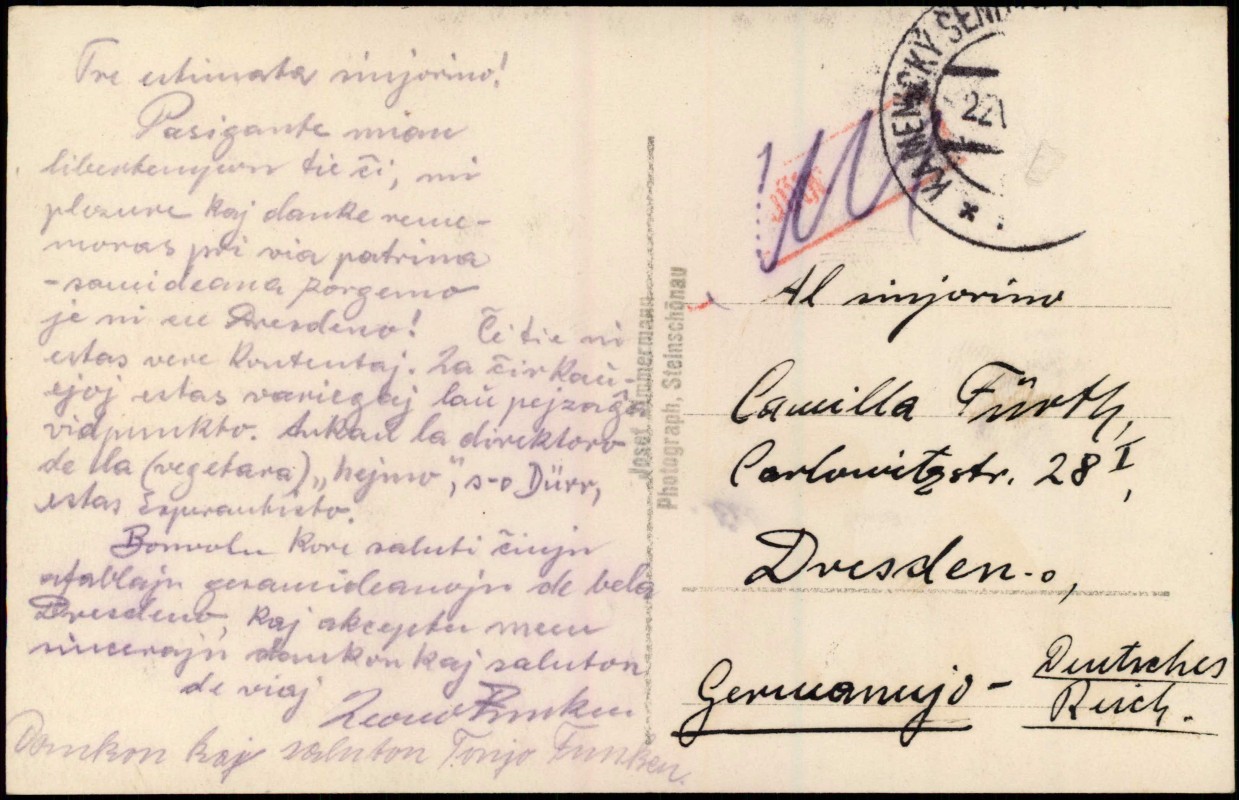 Tre estimata sinjorino!
Pasigante mian
libertempon tie ĉi, mi
plezure kaj danke reme-
moras pri via patrina
-samideana zorgemo
je ni en Dresdeno! Ĉi tie ni
estas vere kontentaj. La ĉirkaŭ-
ejoj estas variegaj laŭ pejzaĝa
vidpunkto. Ankaŭ la direktoro
de la (vegetara) „hejmo", s-o Dürr,
estas Esperantisto.
Bonvolu kore saluti ĉiujn
afablajn gesamideanojn de bela
Dresdeno, kaj akceptu mem
sincerajn dankon kaj saluton
de viaj
Funken
Dankon kaj saluton Tonjo Funken.
Josef Zimmermann
Photograph, Steinschönau
KAMENICKÝ
22
Al sinjorino
Camilla Fürth,
Carlowitzstr. 28 I,
Dresden-o,
Germanujo - Deutsches
Reich.